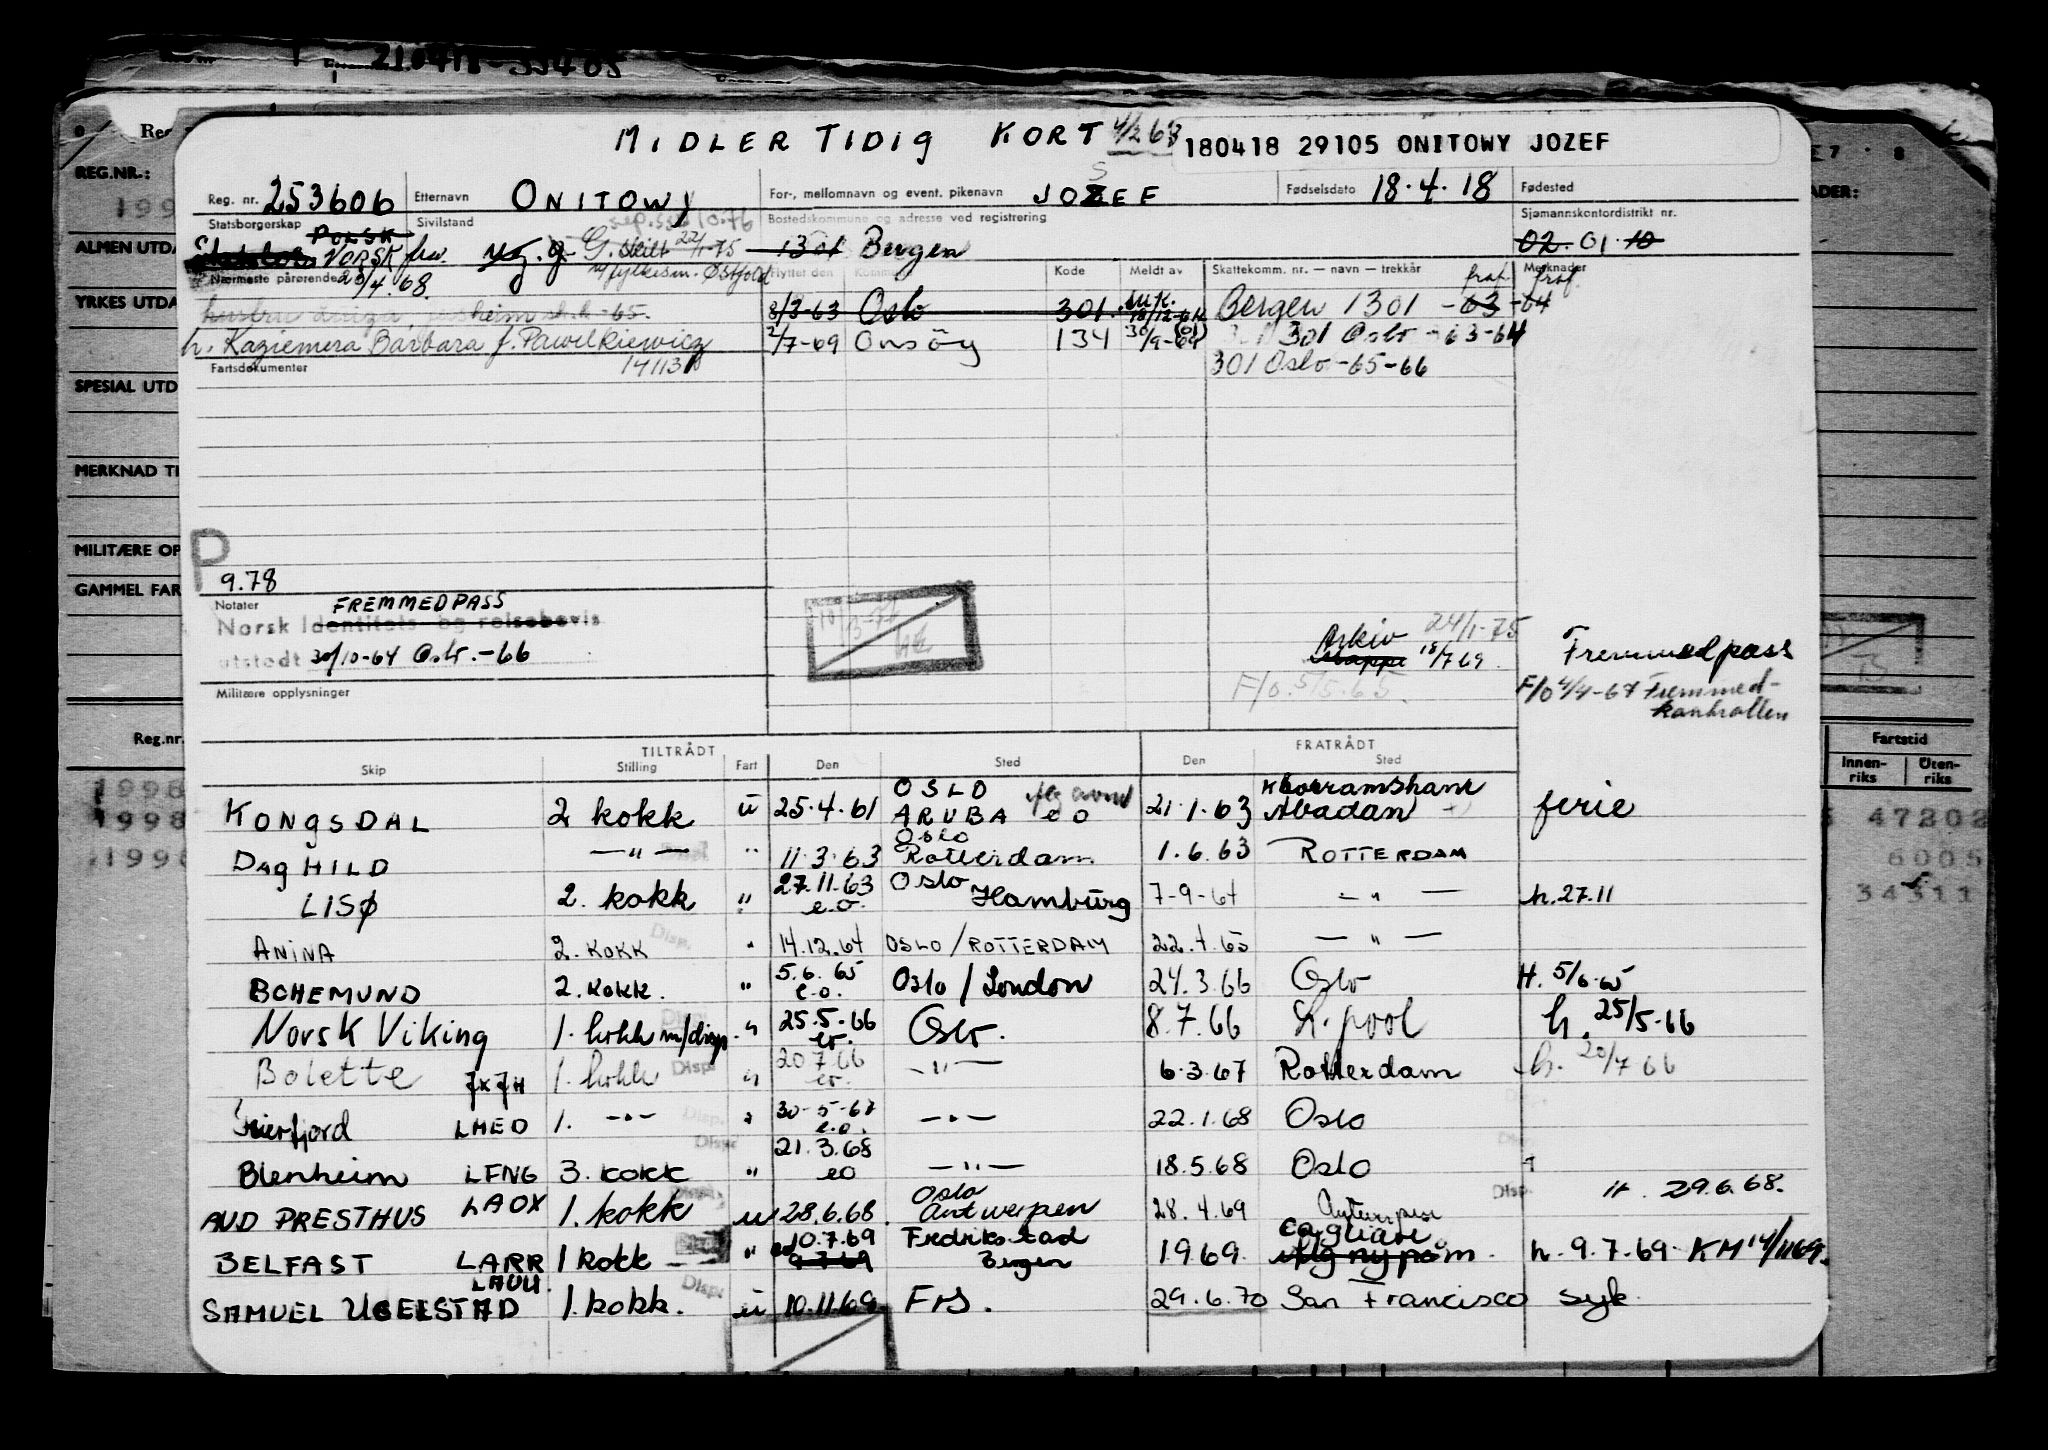 210418 33405
MIDLERTIDIG KORT 4/2 63
180418 29105 ONITOWY JOZEF
Reg. nr. 253606 Etternavn ONITOWY For-, mellomnavn og event. pikenavn JOZEF Fødselsdato 18.4.18 Fødested
Statsborgerskap POLSK Sivilstand sep. 10.76 Bostedskommune og adresse ved registrering Sjømannskontordistrikt nr.
NORSK fra G. skilt 22/1-75 1301 Bergen 02. 01. 10
Nærmeste pårørende 23/4.68. v/fylkesm. Østfold Flyttet den Kommune Kode Meldt av Skattekomm. nr. — navn — trekkår Merknader
8/3-63 Oslo 301 Bergen 1301 -63 -64
h. Kaziemera Barbara f. Pawilkiewicz 2/7-69 Onsøy 134 30/9-69 301 Oslo - 63-64
Fartsdokumenter 301 Oslo -65-66
REG.NR.:
ALMEN UTDA
YRKES UTDA
SPESIAL UTD
MERKNAD TI
MILITÆRE OP
GAMMEL FAR
P
9.78
Notater FREMMEDPASS
Norsk Identitets- og reisebevis
utstedt 30/10-64 Oslo.-66
Arkiv 24/1-75
Mappe 18/7 69.
Fremmedpass
F/o. 5/5.65.
F/o 4/4-67 Fremmed-
kontrollen
Militære opplysninger
TILTRÅDT FRATRÅDT
Skip Stilling Fart Den Sted Den Sted
Reg.nr. Fartstid
Innen-riks Uten-riks
KONGSDAL 2 kokk u 25.4.61 OSLO ARUBA e o 21.1.63 Khorramshahr Abadan ferie
DAGHILD —"— " 11.3.63 Oslo Rotterdam 1.6.63 ROTTERDAM
LISØ 2. kokk " 27.11.63 e.o. Oslo Hamburg 7-9-64 — " — h.27.11
ANINA 2. KOKK Disp. " 14.12.64 OSLO/ROTTERDAM 22.4.65 — " —
BOHEMUND 2. KOKK. " 5.6.65 e.o. Oslo / London 24.3.66 Oslo H. 5/6-65
Norsk Viking 1. kokk m/disp " 25.5.66 eo. Oslo. 8.7.66 L.pool h. 25/5-66
Bolette JXJH 1. kokk Disp. " 20 7 66 eo. —"— 6.3.67 Rotterdam h. 20/7 66
Frierfjord LMED 1. —"— Disp. " 30-5-67 e.o. —"— 22.1.68 Oslo
Blenheim LFNG 3. kokk Disp. " 21.3.68 eo —"— 18.5.68 Oslo
AUD PRESTHUS LAOX 1. kokk Disp. u 28.6.68. Oslo Antwerpen 28.4.69 Antwerpen Disp. H. 29.6.68.
BELFAST LARR 1 kokk " 10.7.69 9.7.69 Fredrikstad Bergen 1969. Cagliari h. 9.7.69. KM 14/1169.
SAMUEL UGELSTAD LAUU. 1. kokk. Disp. u 10.11.69 FrS. 29.6.70 San Francisco syk
47202
6005
34311